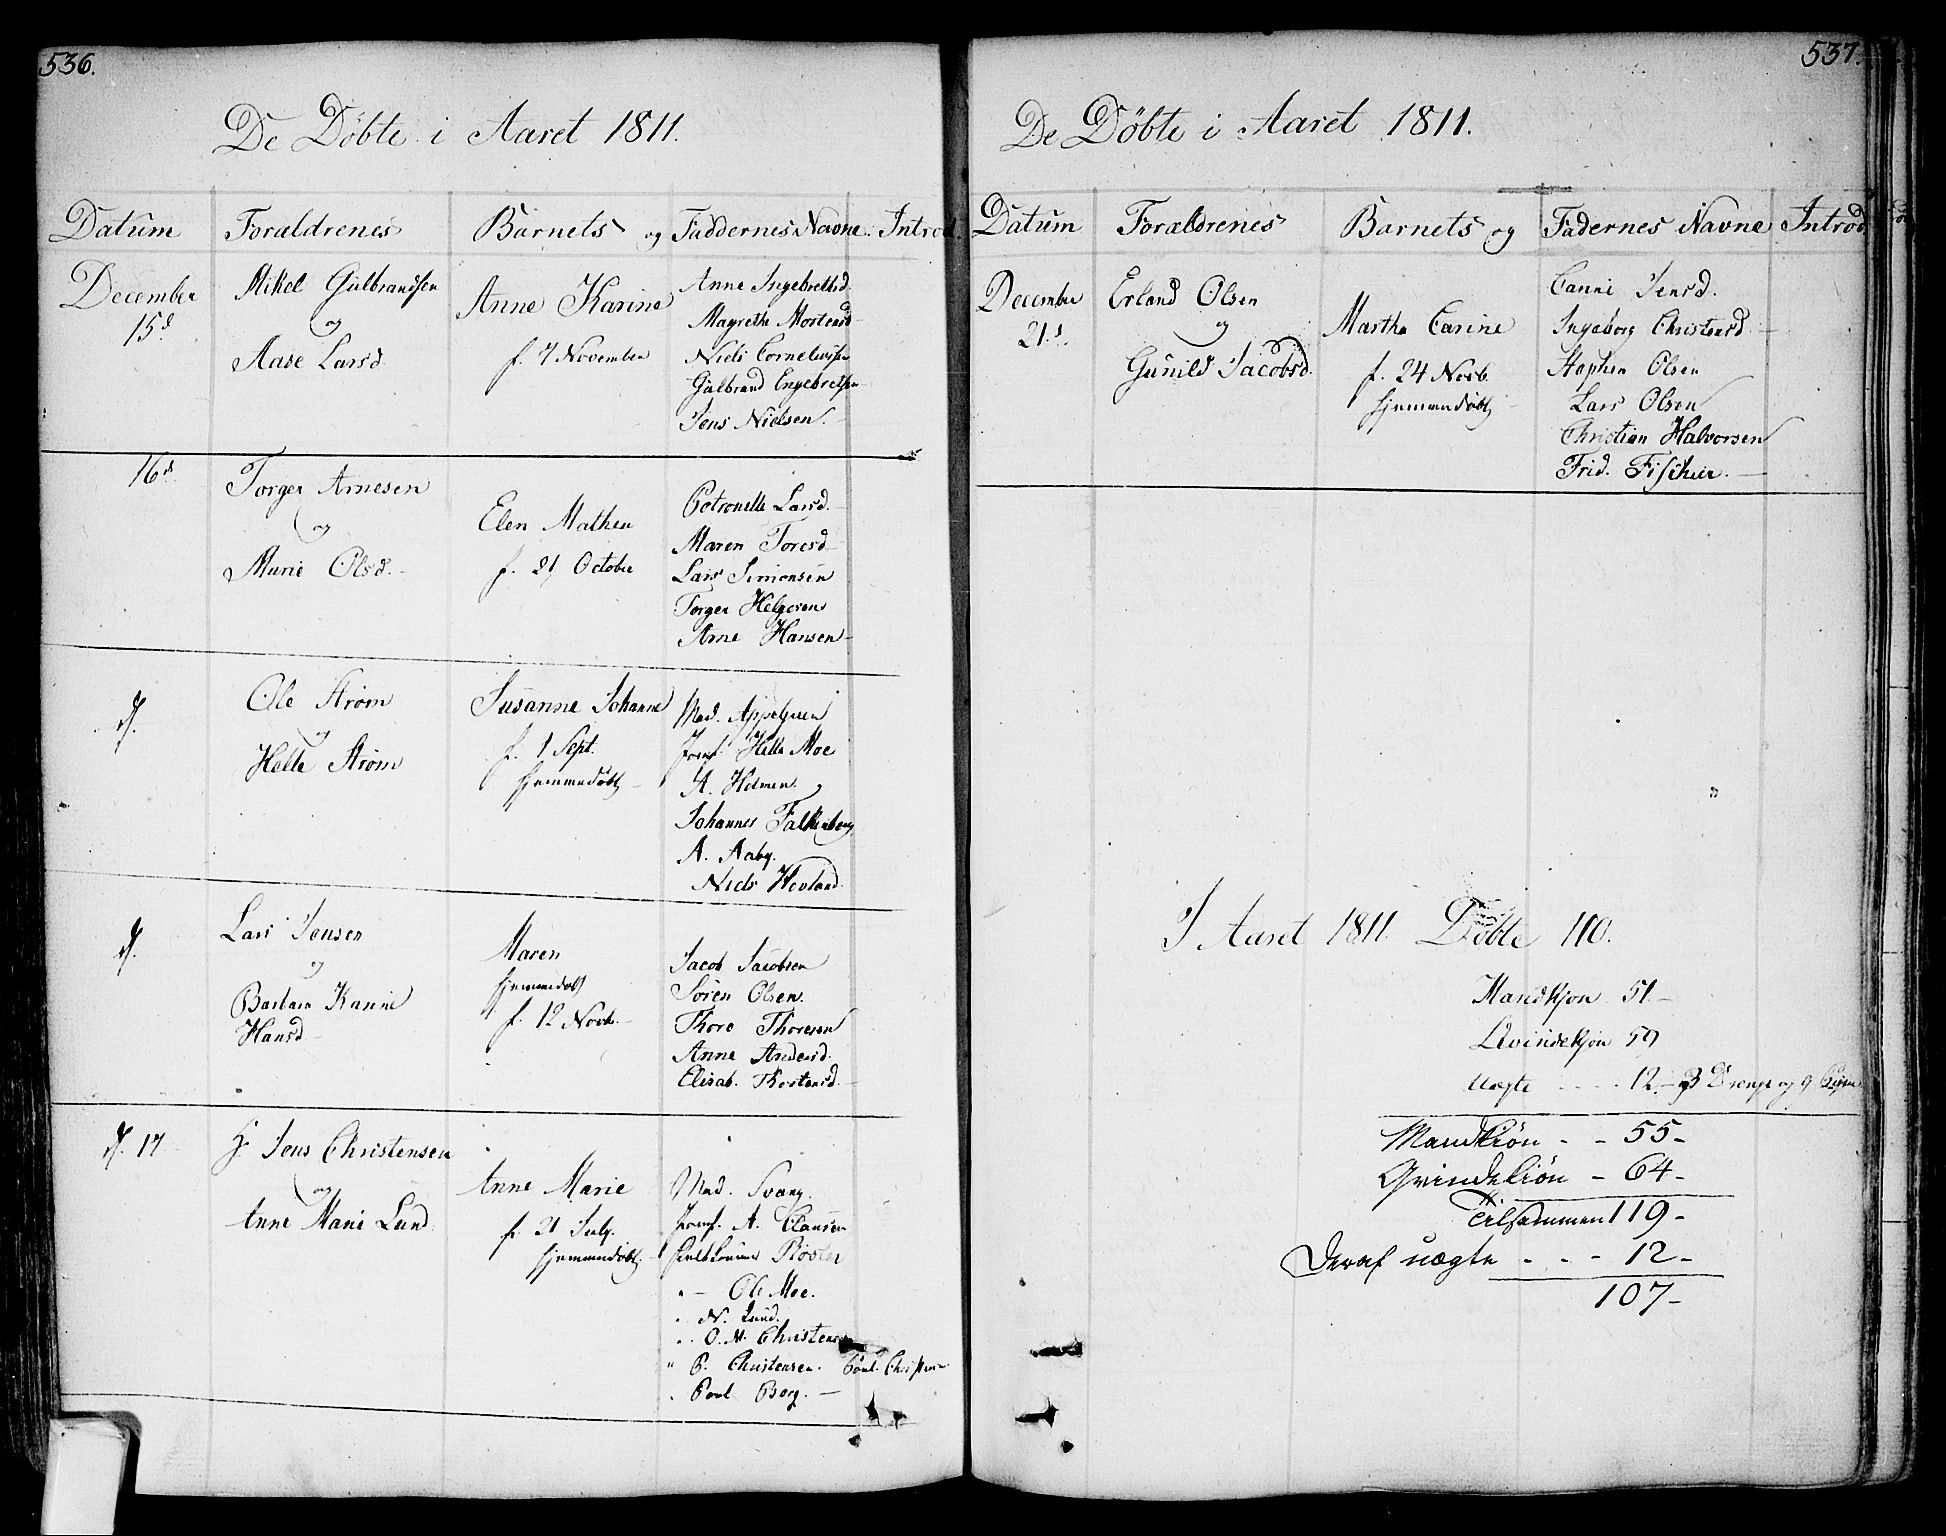 536.
De Döbte i Aaret 1811.
Datum Foraldrenes Barnets og Faddernes Navne. Introd.
December
15d
Mikel Gulbrandsen
og
Aase Larsd
Anne Karine
f. 7 November
Anne Ingebretsd.
Magrethe Mortensd
Niels Corneliusen
Gulbrand Engebretsen
Jens Nielsen.
16d
Torger Arnesen
og
Marie Olsd.
Elen Mathea
f. 21 October
Petronelle Larsd.
Maren Toresd
Lars Simonsen
Torger Helgesen
Arne Hansen
d.
Ole Strøm
og
Helle Strøm
Susanne Johanne
f. 1 Sept.
hjemmedøbt
Mad. Appelgreen
Jomf. Helle Moe
A. Holmen
Johannes Falkenberg
A. Aaby.
Niels Hovland
d.
Lars Jensen
og
Barbara Kanne
Hansd
Maren
hjemmedøbt
f. 12 Novb.
Jacob Jacobsen
Sören Olsen.
Thore Thoresen
Anne Andersd.
Elisab. Thostensd.
d. 17
Hr Jens Christensen
og
Anne Marie Lund
Anne Marie
f. 21 July.
hjemmedøbt.
Mad. Svang.
Jomf. A. Clausen
Røsler
" - Ol. Moe.
" N. Lund.
" O. M. Christens
" P. Christensen. Poul Christens
" Poul Borg.
537.
De Döbte i Aaret 1811.
Datum Forældrenes Barnets og Fadernes Navne Introd.
December
21d.
Erland Olsen
og
Gunild Jacobsd.
Martha Carine
f. 24 Novb.
hjemmedøbt
Canni Jensd.
Ingeborg Christensd.
Stephen Olsen
Lars Olsen
Christian Halvorsen
Frid. Fischer.
I Aaret 1811. Døbte 110.
Mandkjön 51.
Qvindekjön 59
Uægte - - - - 12. 3 Drenge og 9 Piger
Mandkiön - - 55-
Qvindekiön - 64-
Tilsammen 119-
Deraf uægte - - - 12-
107-